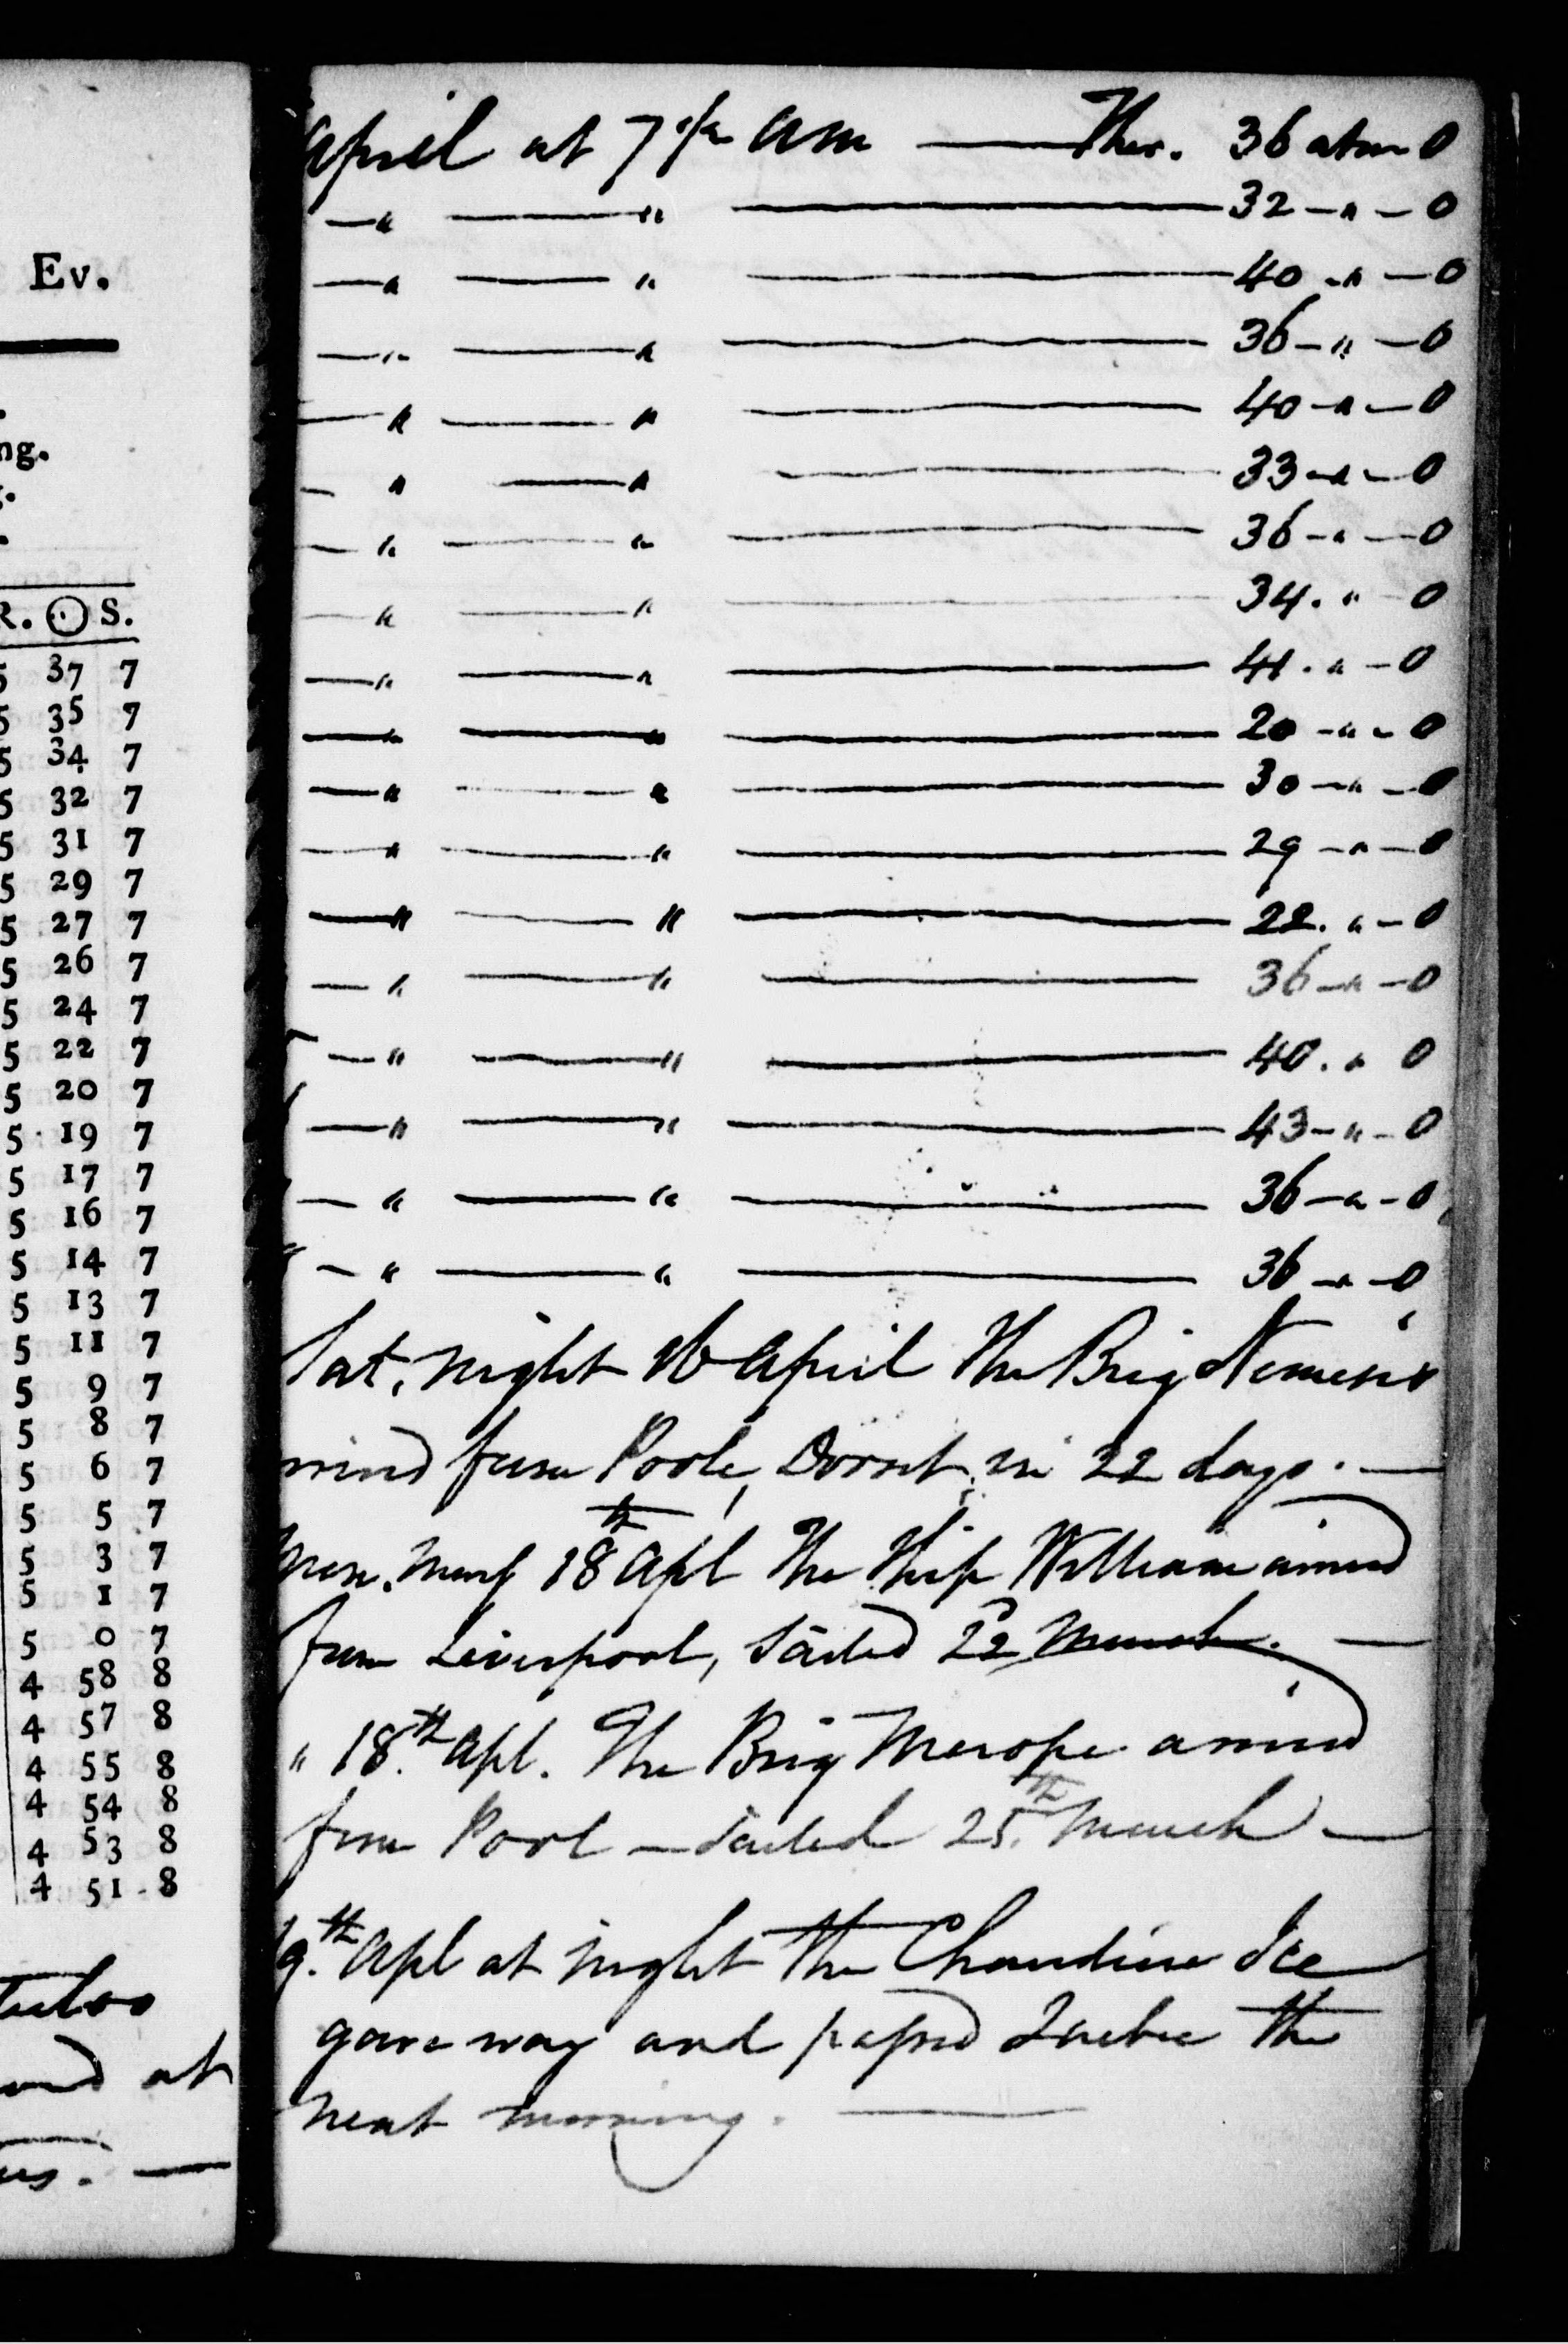 Ev.
ng.
R. ☉ S.
5 37 7
5 35 7
5 34 7
5 32 7
5 31 7
5 29 7
5 27 7
5 26 7
5 24 7
5 22 7
5 20 7
5 19 7
5 17 7
5 16 7
5 14 7
5 13 7
5 11 7
5 9 7
5 8 7
5 6 7
5 5 7
5 3 7
5 1 7
5 0 7
4 58 8
4 57 8
4 55 8
4 54 8
4 53 8
4 51 8
at
April at 7 1/2 am — Ther. 36 above 0
— " — " — 32 — " — 0
— " — " — 40 — " — 0
— " — " — 36 — " — 0
— " — " — 40 — " — 0
— " — " — 33 — " — 0
— " — " — 36 — " — 0
— " — " — 34 . " — 0
— " — " — 41 . " — 0
— " — " — 20 — " — 0
— " — " — 30 — " — 0
— " — " — 29 — " — 0
— " — " — 22 . " — 0
— " — " — 36 — " — 0
— " — " — 40 . " 0
— " — " — 43 — " — 0
— " — " — 36 — " — 0
— " — " — 36 — " — 0
Sat. night 16 April The Brig Nemesis
arrived from Poole, Dorset, in 22 days. —
18th Apl The Ship William arrived
from Liverpool, Sailed 22 March. —
" 18th Apl. The Brig Merope arrived
from Pool — Sailed 25th March —
19th Apl at night the Chaudiere Ice
gave way and passed Quebec the
next morning. —